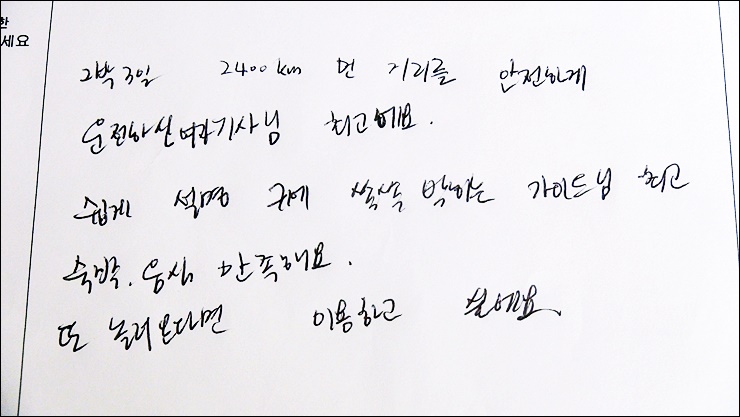 한
세요
2박3일 2400km 먼 거리를 안전하게
운전하신 여자기사님 최고에요.
쉽게 설명 귀에 쏙쏙 박히는 가이드님 최고
숙박. 음식 만족해요.
또 놀러온다면 이용하고 싶에요.